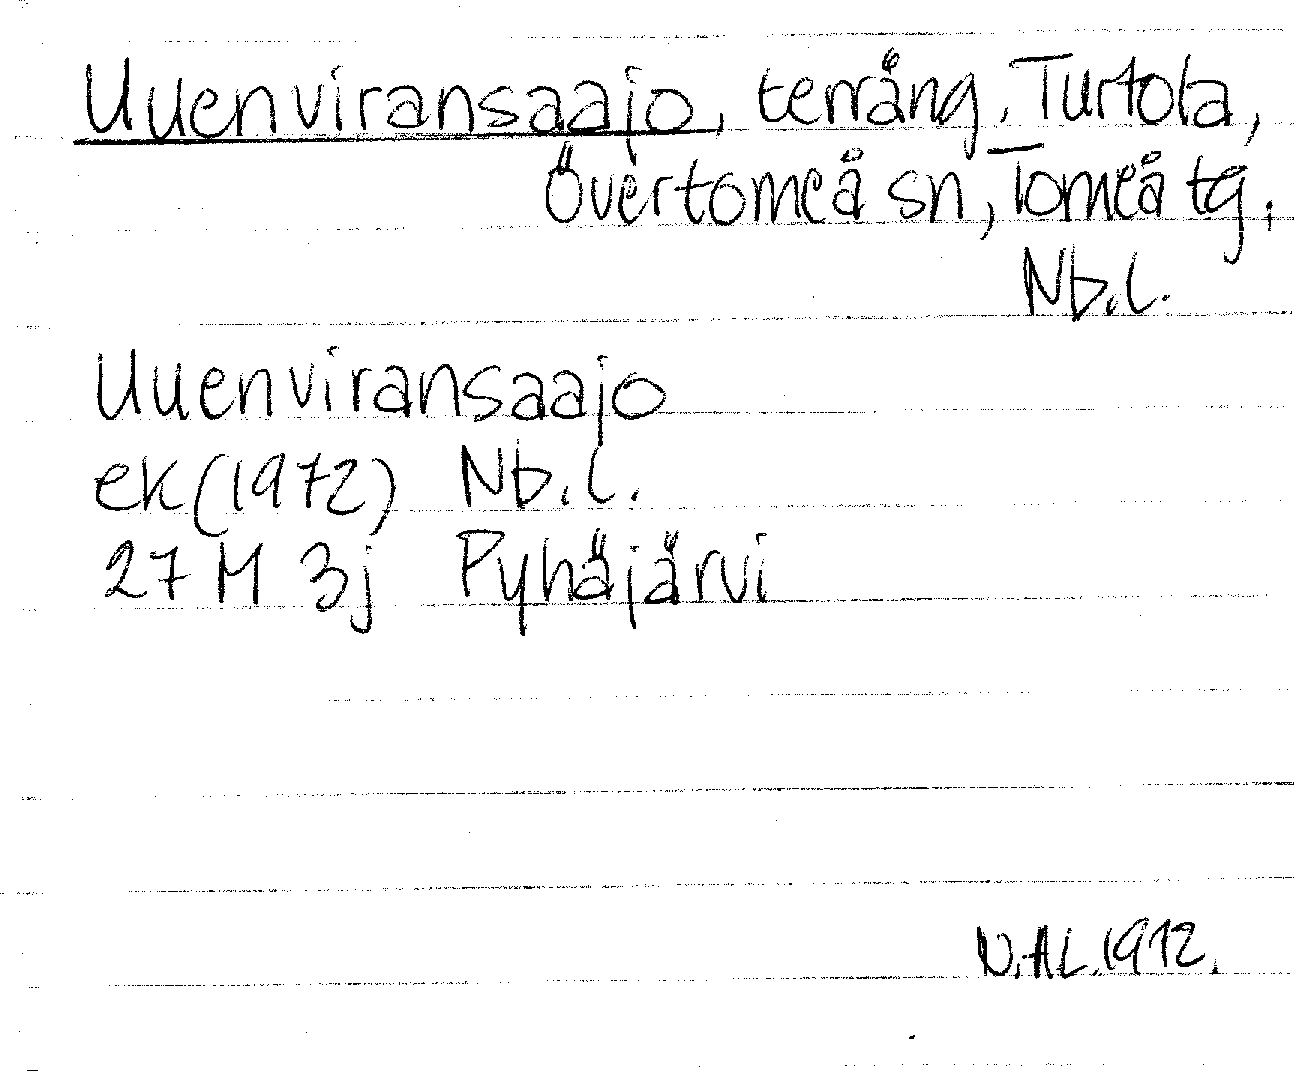 Uuenviransaajo, terräng, Turtola,
Övertorneå sn, Torneå tg,
Nb.l.
Uuenviransaajo
ek (1972) Nb.l.
27 M 3j Pyhäjärvi
N.ÅL.1972.